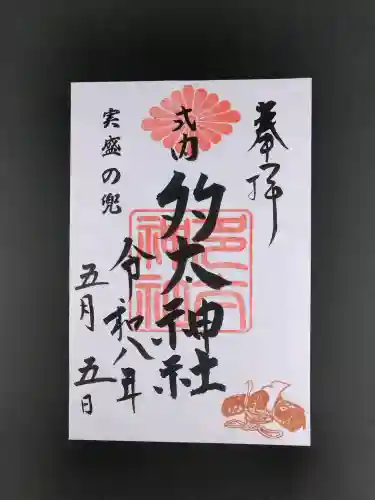 奉拝
式内
多太神社
令和八年
五月五日
実盛の兜